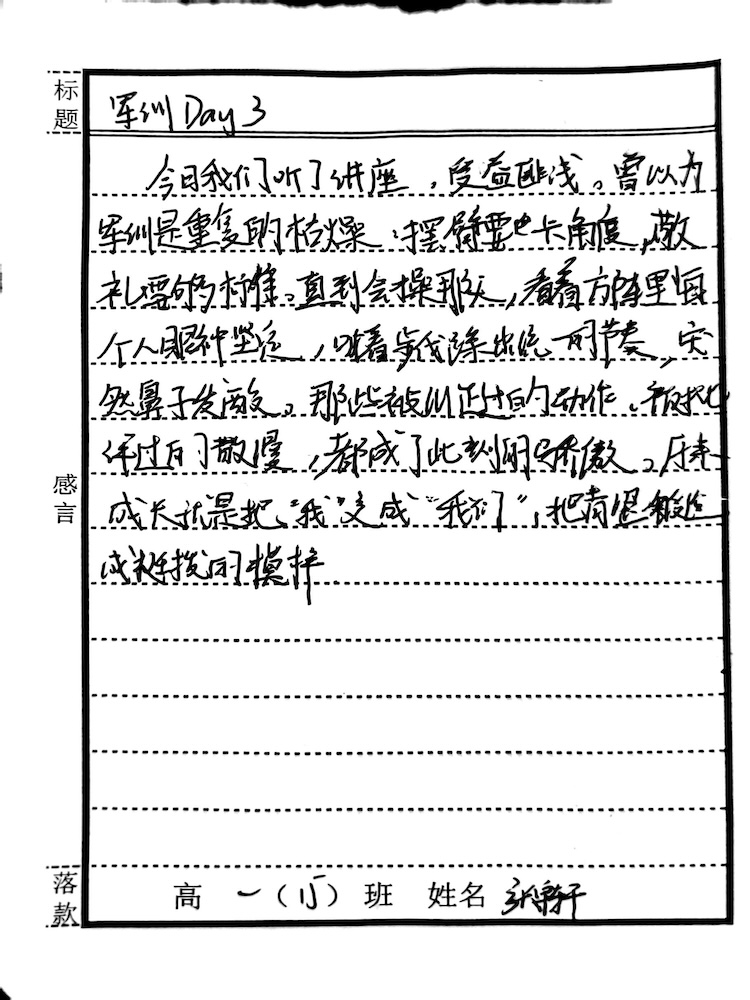 标题
军训 Day 3
今日我们听了讲座，受益匪浅。曾以为
军训是重复的枯燥，摆臂要卡角度，敬
礼要够标准。直到会操那天，看着方阵里每
个人眼神坚定，听着步伐踩出统一的节奏，突
然鼻子发酸。那些被纠正过的动作、被批
评过的散漫，都成了此刻的骄傲。原来
成长就是把“我”变成“我们”，把青涩锻造
成挺拔的模样
感言
落款
高 一（15）班 姓名